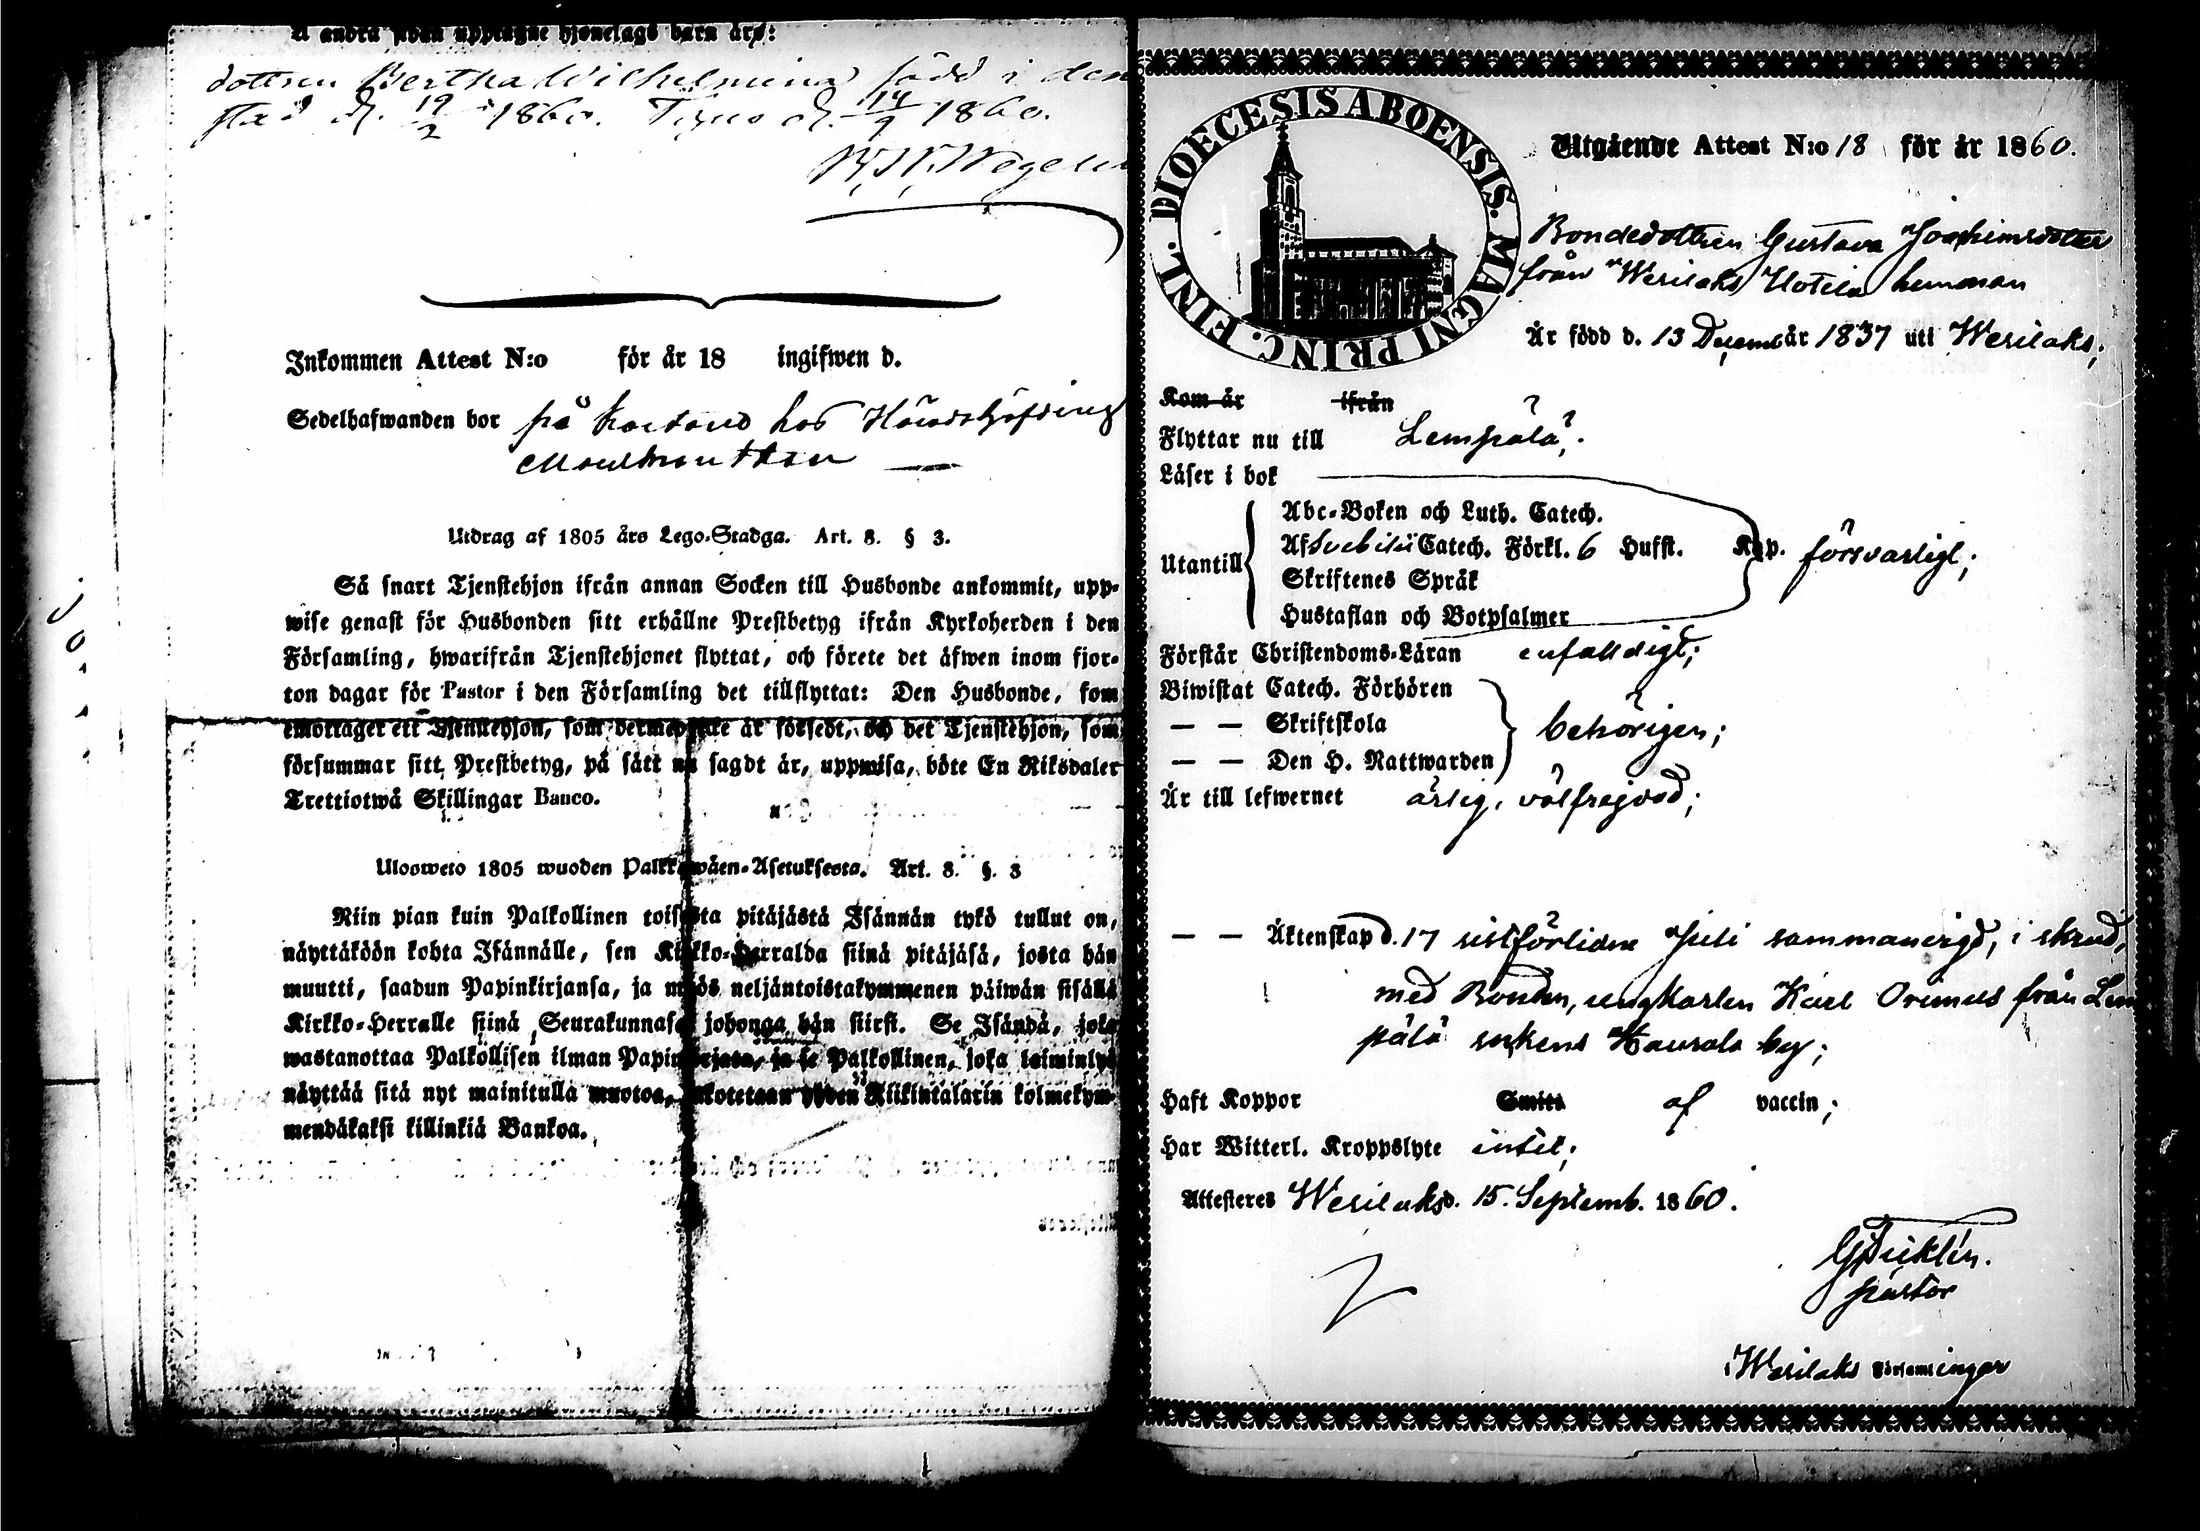 å andra sidan upptagne hjonelags barn äro:
dottren Bertha Wilhelmina född i den
stad d. 19/2 1860. d. 14/9 1860.
Inkommen Attest N:o för år 18 ingifwen d.
Sedelhafwanden bor på hos Häradshöfding
Utdrag af 1805 års Lego-Stadga. Art. 8. § 3.
Så snart Tjenstehjon ifrån annan Socken till Husbonde ankommit, upp-
wise genast för Husbonden sitt erhållne Prestbetyg ifrån Kyrkoherden i den
Församling, hwarifrån Tjenstehjonet flyttat, och förete det äfwen inom fjor-
ton dagar för Pastor i den Församling det tillflyttat: Den Husbonde, som
emottager ett Tjenstehjon, som dermed icke är försedt, och det Tjenstehjon, som
försummar sitt Prestbetyg, på sätt nu sagdt är, uppwisa, böte En Riksdaler
Trettiotwå Skillingar Banco.
Ulosweto 1805 wuoden Palkkawäen-Asetuksesta. Art. 8. §. 3
Niin pian kuin Palkollinen toisesta pitäjästä Isännän tykö tullut on,
näyttäköön kohta Isännälle, sen Kirkko-Herralda siinä pitäjäsä, josta hän
muutti, saadun Papinkirjansa, ja myös neljäntoistakymmenen päiwän sisällä
Kirkko-Herralle siinä Seurakunnasa johonga hän siirsi. Se Isändä, joka
wastanottaa Palkollisen ilman Papinkirjata, ja se Palkollinen, joka laiminlyö
näyttää sitä nyt mainitulla muotoa, sakotetaan yhden Riikintalarin kolmekym-
mendäkaksi killinkiä Bankoa.
DIOECESIS ABOENSIS. MAGNI PRINC. FINL.
Utgående Attest N:o 18 för år 1860.
Bondedottren Gustava Joachimsdotter
från Wesilaks Hotila hemman
Är född d. 13 Decemb år 1837 uti Wesilaks;
Kom år ifrån
Flyttar nu till Lempälä;
Läser i bok
Utantill
Abc-Boken och Luth. Catech.
Af Svebilii Catech. Förkl. 6 Hufst. Kap. försvarligt;
Skriftenes Språk
Hustaflan och Botpsalmer
Förstår Christendoms-Läran enfaldigt;
Biwistat Catech. Förhören
— — Skriftskola behörigen;
— — Den H. Nattwarden
Är till lefwernet ärlig, välfrejdad;
— — Äktenskap d. 17 sistförlidne Juli sammanvigd, i skrud,
med Bonden, ungkarlen Karl Orimus från Lem
pälä sockens Haurala by;
Haft Koppor Smitt af vaccin;
Har Witterl. Kroppslyte intet;
Attesteres Wesilaks d. 15. Septemb. 1860.
pastor
i Wesilaks Församlingar